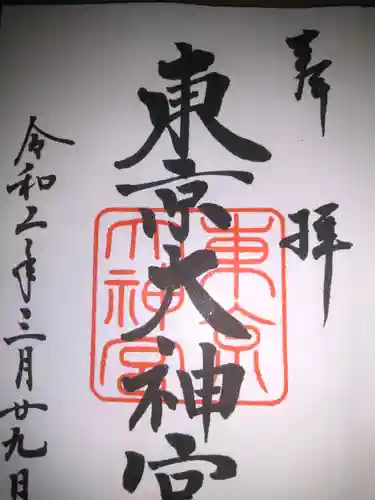 奉拝
東京大神宮
東京
大神宮
令和二年三月廿九日